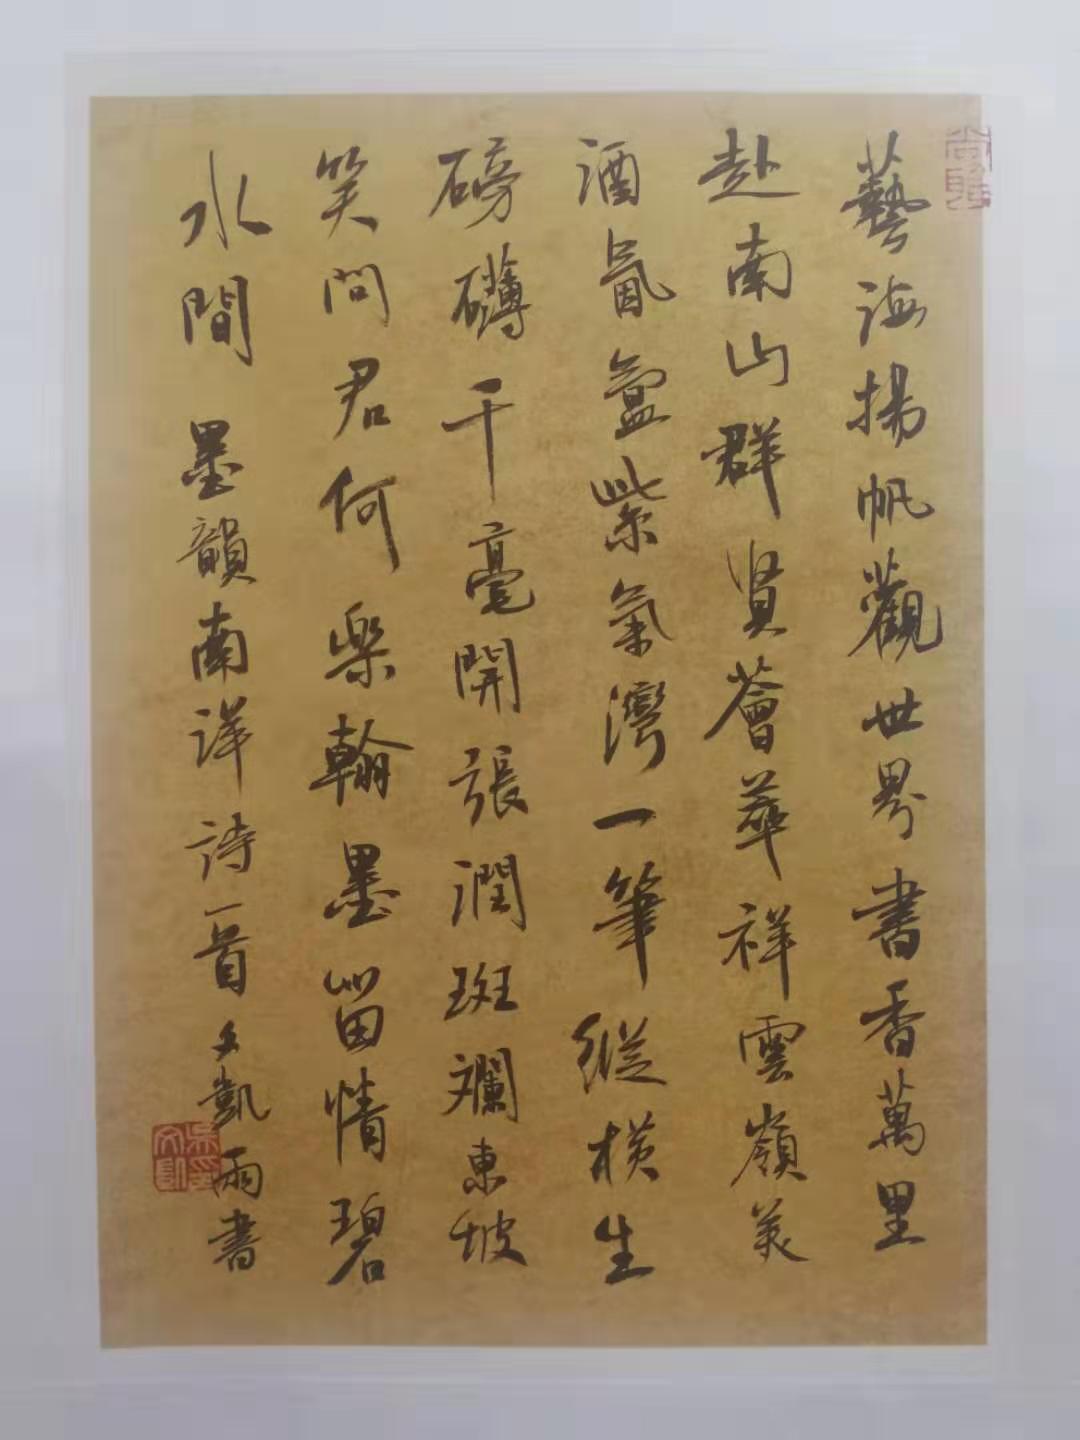 藝海揚帆觀世界書香萬里
赴南山群賢薈萃祥雲嶺美
酒氤氳紫氣灣一筆縱橫生
磅礴千毫開張潤斑斕東坡
笑問君何樂翰墨留情碧
水間 墨韻南洋詩一首文凱雨書